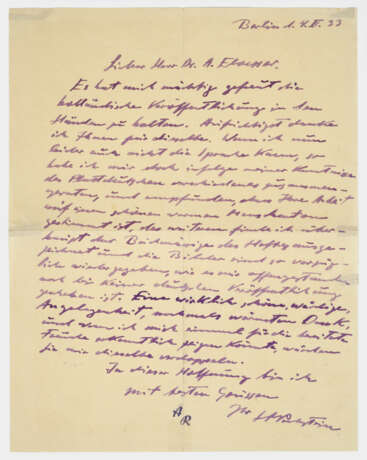 Berlin d. 4. II. 33
Lieber Herr Dr. A. Eloesser.
Es hat mich mächtig gefreut die
holländische Veröffentlichung in den
Händen zu halten. Aufrichtigst danke
ich Ihnen für dieselbe. Wenn ich nun
leider auch nicht die Sprache kann, so
habe ich mir doch infolge meiner Kenntnisse
des Plattdeutschen verschiedenes zusammen-
geraten, und empfunden, dass Ihre Arbeit
auf einen schönen warmen Menschenton
gestimmt ist, des weiteren finde ich über-
zeugt das Beibringen des Stoffes ausge-
zeichnet und die Bilder sind so vorzüg-
lich wiedergegeben, wie es mir offengestanden
noch bei keiner deutschen Veröffentlichung
geschehen ist. Eine wirklich schöne, würdige,
Angelegenheit, nochmals wärmsten Dank,
und wenn ich mich einmal für die bereitete
Freude erkenntlich zeigen könnte, würden
Sie mir dieselbe verdoppeln.
In dieser Hoffnung bin ich
mit besten Grüssen
Ihr HMPechstein
A
R